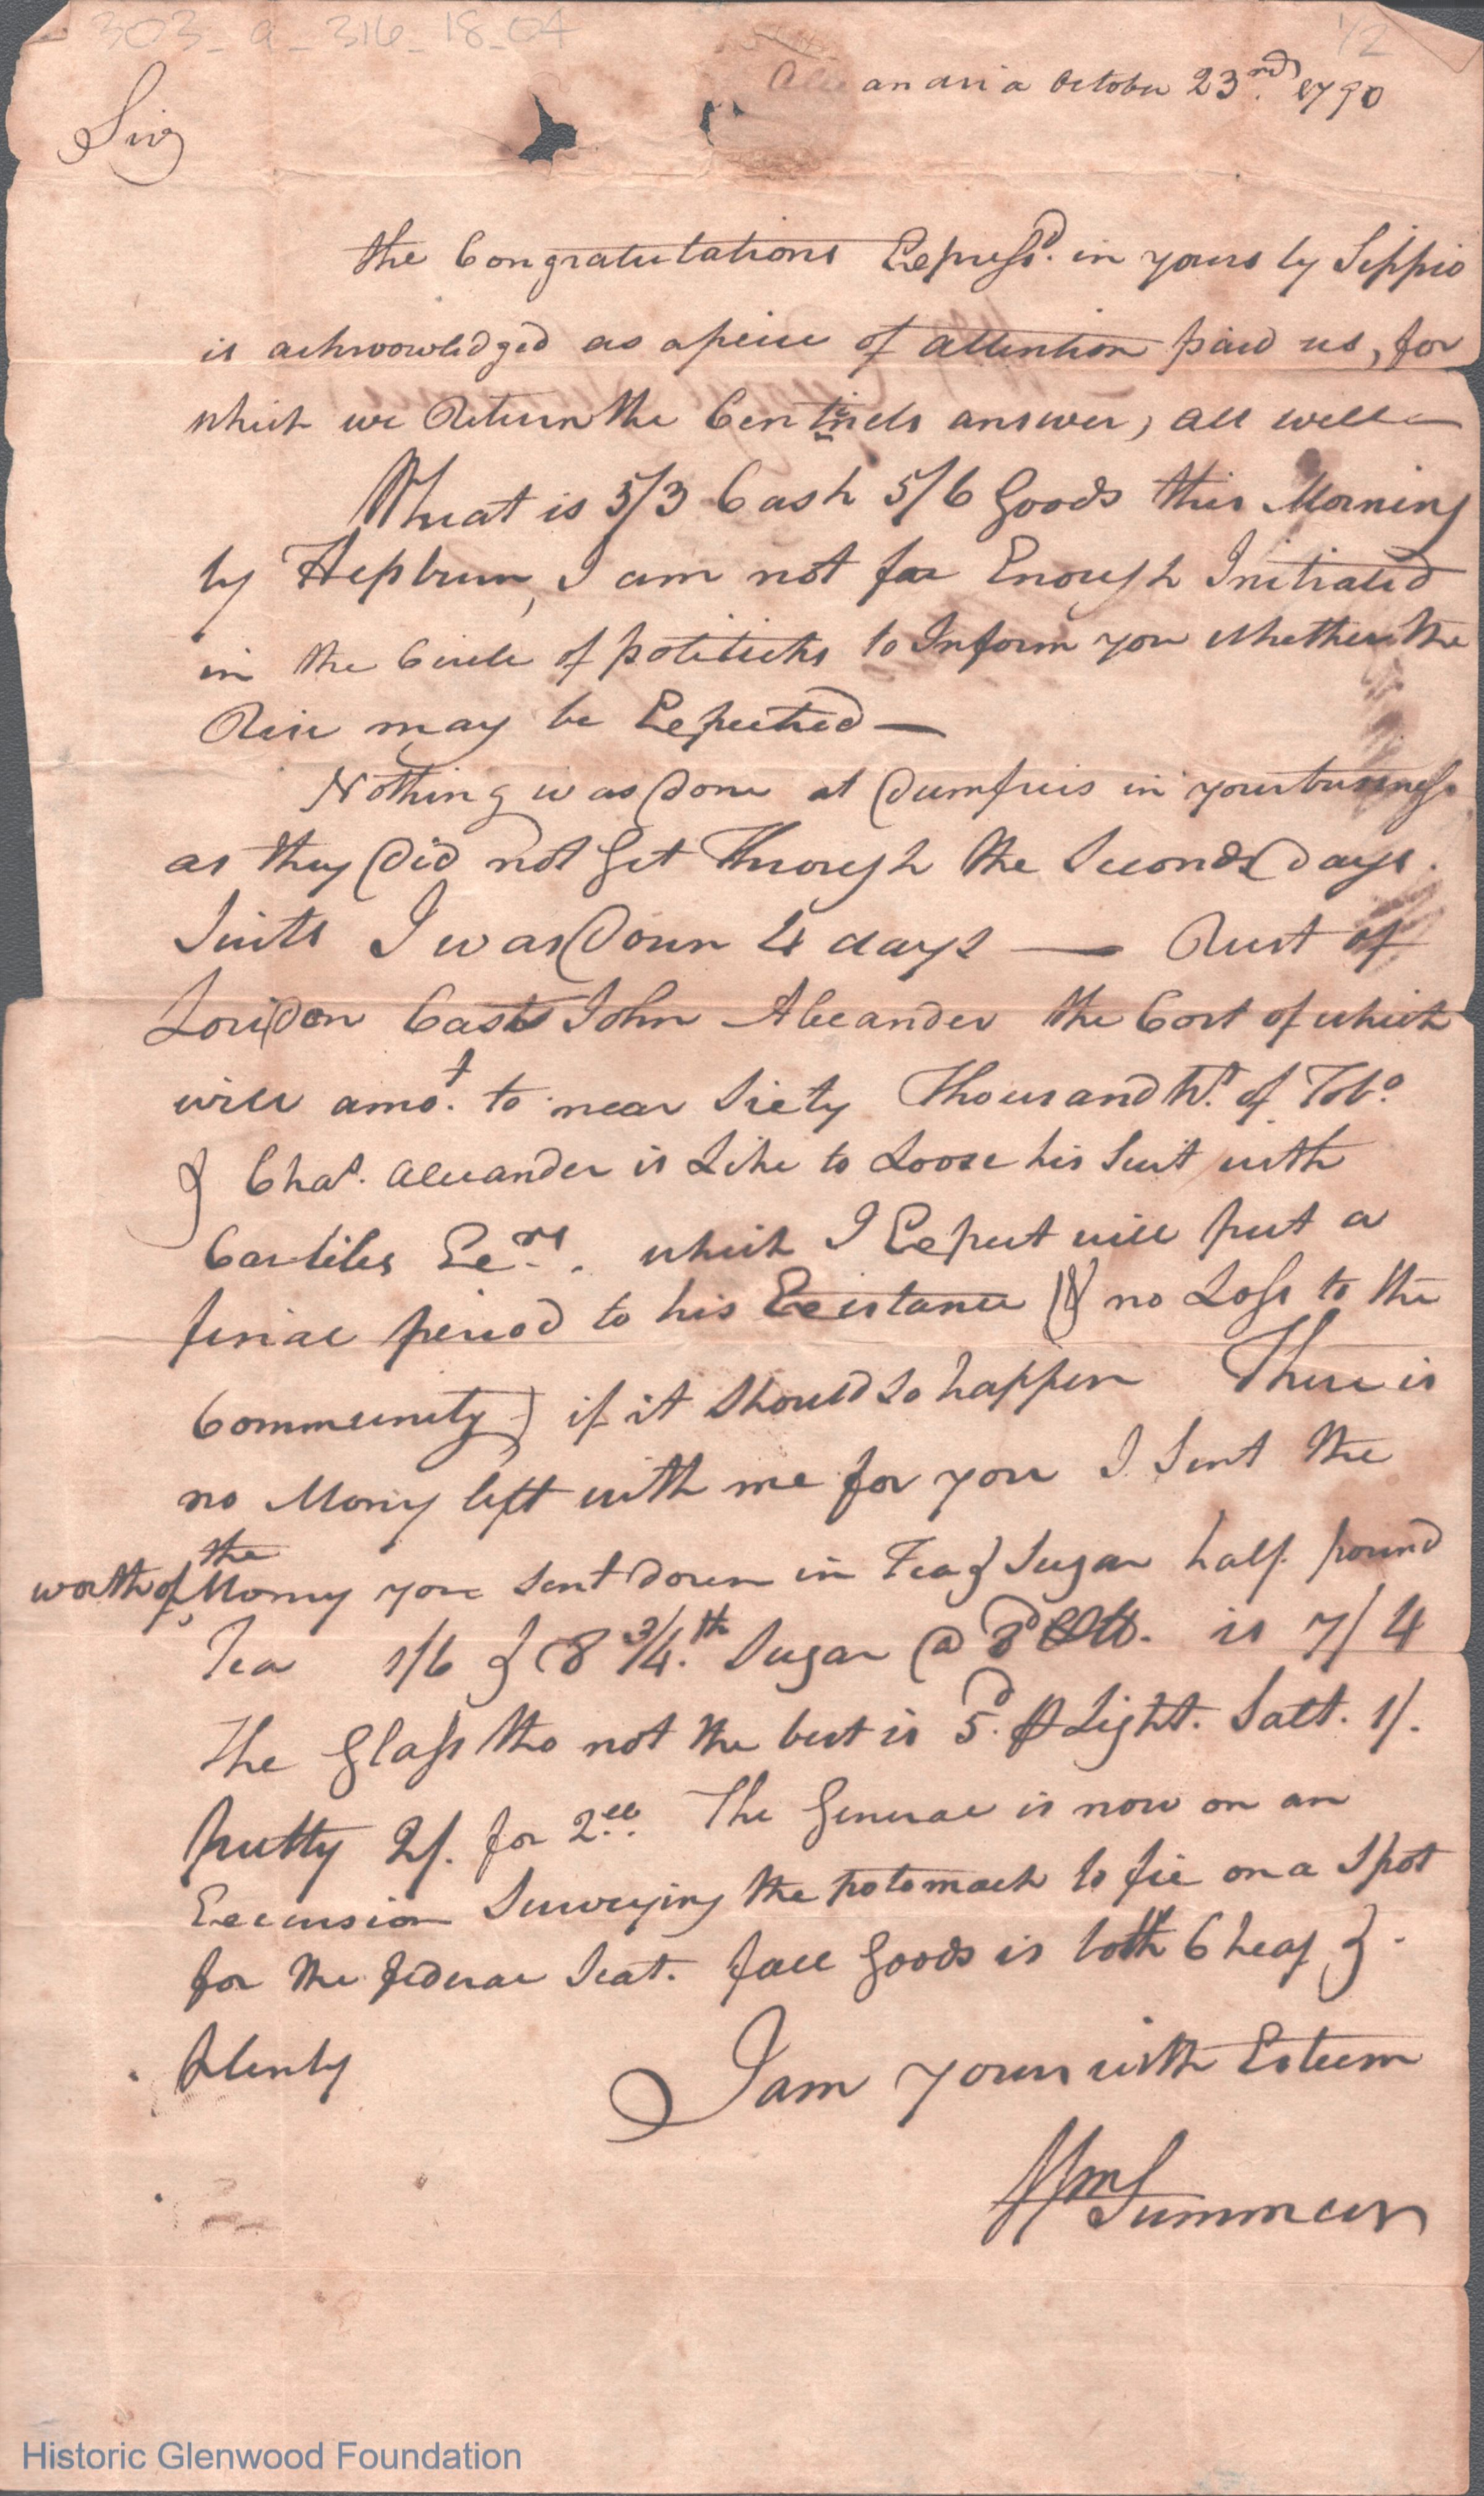 303_a_316_18_04
1/2
Alexandria October 23rd. 1790
Sir
the Congratulations Expressd. in yours by Sippio
is acknowledged as a peice of attention paid us, for
which we Return the Centinels answer, all well —
Wheat is 5/3 Cash 5/6 Goods this Morning
by Hepburn, I am not far Enough Initiated
in the Circle of politicks to Inform you whether the
Rise may be Expected —
Nothing was done at Dumfries in your business
as they did not Get Through the Second days
Suits I was Down 4 days — Rust of
Loudon Casts John Alexander the Cost of which
will amot. to near Sixty Thousand Wt. of Tobo.
& Chas. Alexander is Like to Loose his Suit with
Carliles Exrs. which I Expect will put a
final period to his Existance (& no Loss to the
Community) if it should so happen There is
no Mony left with me for you I Sent the
worth of the Mony you sent down in Tea & Sugar half pound
Tea 1/6 & 8 3/4 lb. Sugar @ 8d is 7/4
The Glass tho not the best is 5d. ⅌ Light. Salt. 1/.
putty 2/. for 2 lb. The General is now on an
Excursion Surveying the potomack to fix on a Spot
for the federal Seat. fall Goods is both Cheap &
plenty
I am yours with Esteem
Wm Summers
Historic Glenwood Foundation